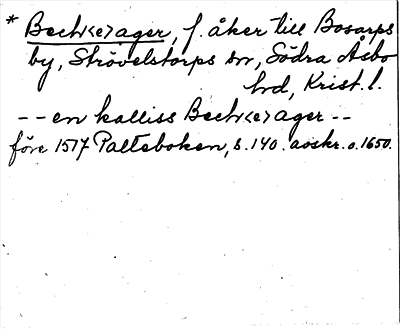 * Bech<e>ager, f. åker till Bosarps
by, Strövelstorps sn, Södra Åsbo
hd, Krist. l.
-- en kalliss Bech<e>ager --
före 1517 Palteboken, s. 140. avskr. o. 1650.